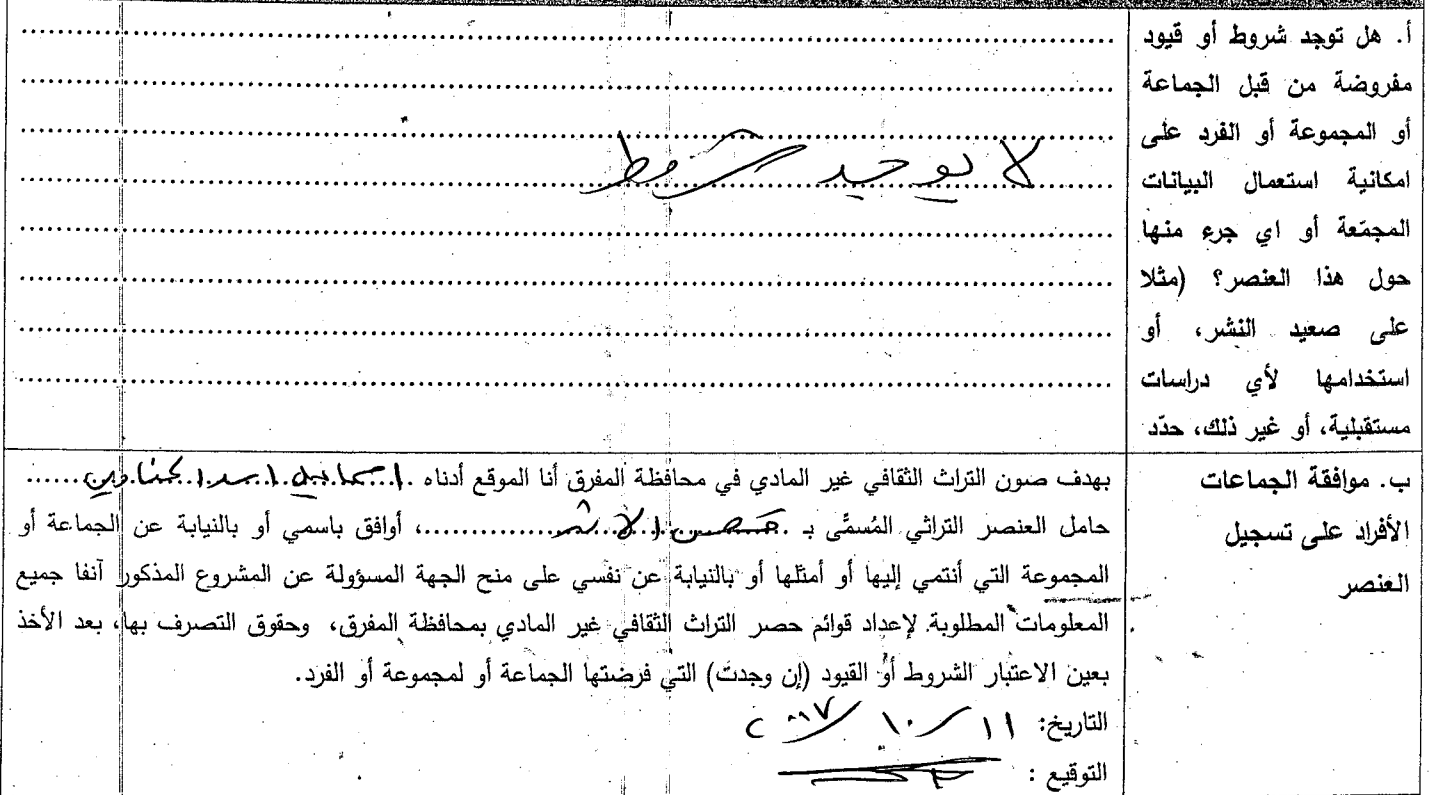 أ. هل توجد شروط أو قيود
مفروضة من قبل الجماعة
أو المجموعة أو الفرد على
امكانية استعمال البيانات
المجمّعة أو اي جرء منها
حول هذا العنصر؟ (مثلا
على صعيد النشر، أو
استخدامها لأي دراسات
مستقبلية، أو غير ذلك، حدّد
لا يوجد شروط
ب. موافقة الجماعات
الأفراد على تسجيل
العنصر
بهدف صون التراث الثقافي غير المادي في محافظة المفرق أنا الموقع أدناه
حامل العنصر التراثي المُسمَّى بـ ......، أوافق باسمي أو بالنيابة عن الجماعة أو
المجموعة التي أنتمي إليها أو أمثلها أو بالنيابة عن نفسي على منح الجهة المسؤولة عن المشروع المذكور آنفا جميع
المعلومات المطلوبة لإعداد قوائم حصر التراث الثقافي غير المادي بمحافظة المفرق، وحقوق التصرف بها، بعد الأخذ
بعين الاعتبار الشروط أو القيود (إن وجدت) التي فرضتها الجماعة أو لمجموعة أو الفرد.
التاريخ: ١١/١٠/٢٠١٧
التوقيع :